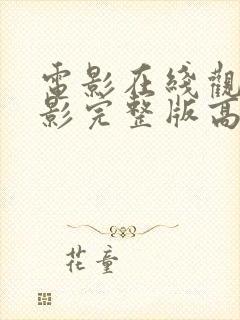 電影在綫觀
影完整版高
花童